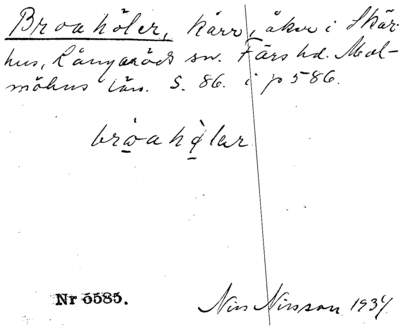 Broahöler, kärr, åker i Skär-
hus, Långaröds sn. Färs hd. Mal-
möhus län. S. 86. i p 586.
broahølar
Nr 5585.
Nils Nilsson 1934